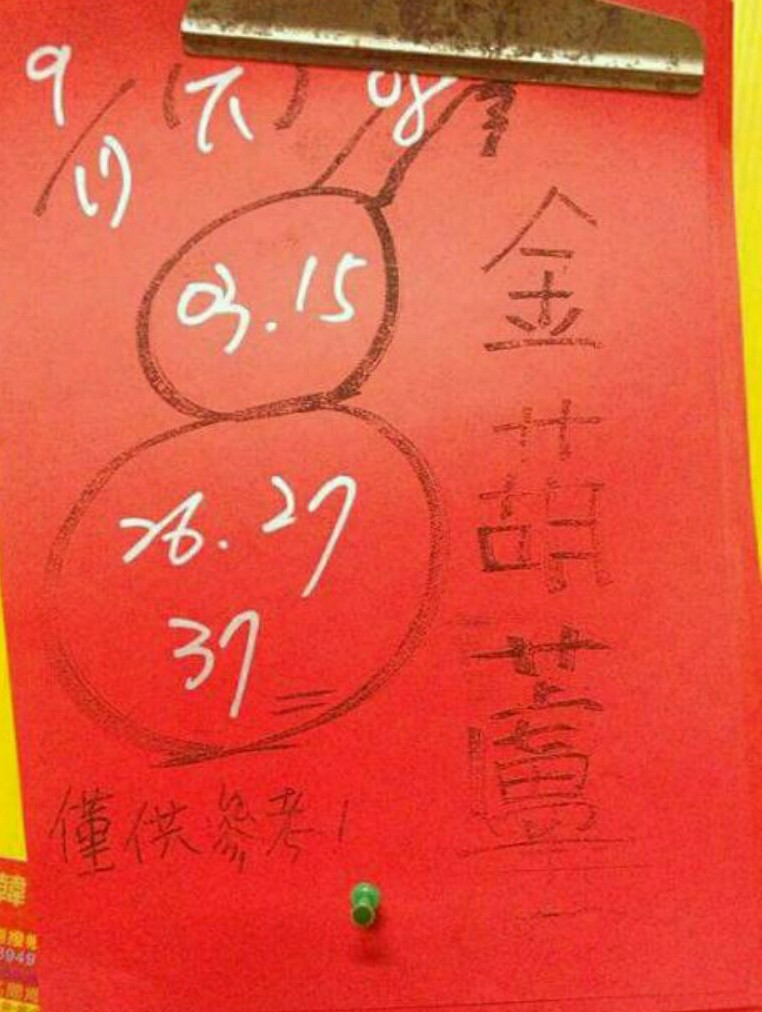 9/17 (六) 08
03.15
26.27
37
金葫蘆
僅供參考!
韓
3949